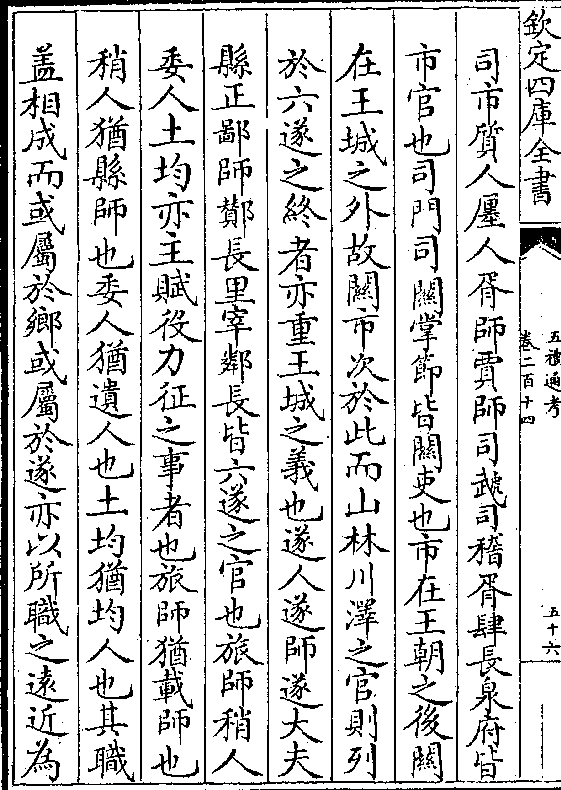 欽定四庫全書
五禮通考
卷二百十四
五十六
司市質人廛人胥師賈師司虣司稽胥肆長泉府皆
市官也司門司關掌節皆關吏也市在王朝之後關
在王城之外故關市次於此而山林川澤之官則列
於六遂之終者亦重王城之義也遂人遂師遂大夫
縣正鄙師酇長里宰鄰長皆六遂之官也旅師稍人
委人土均亦主賦役力征之事者也旅師猶載師也
稍人猶縣師也委人猶遺人也土均猶均人也其職
盖相成而或屬於鄉或屬於遂亦以所職之遠近為